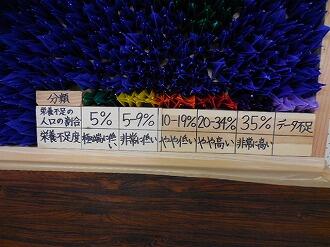 分類
栄養不足の人口の割合 5% 5-9% 10-19% 20-34% 35% データ不足
栄養不足度 極端に低い 非常に低い やや低い やや高い 非常に高い